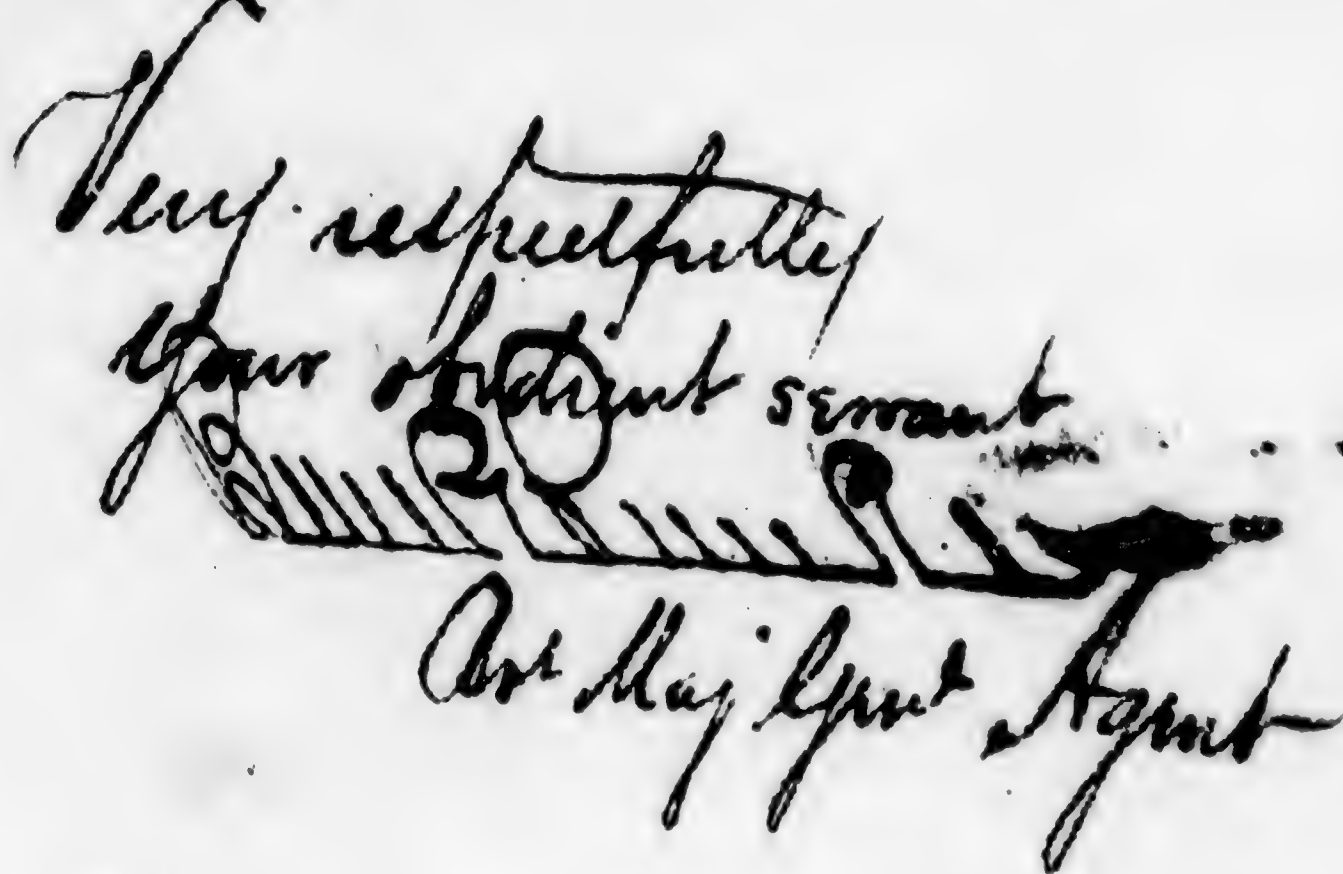 Very respectfully
your obedient servant
Maj Agent